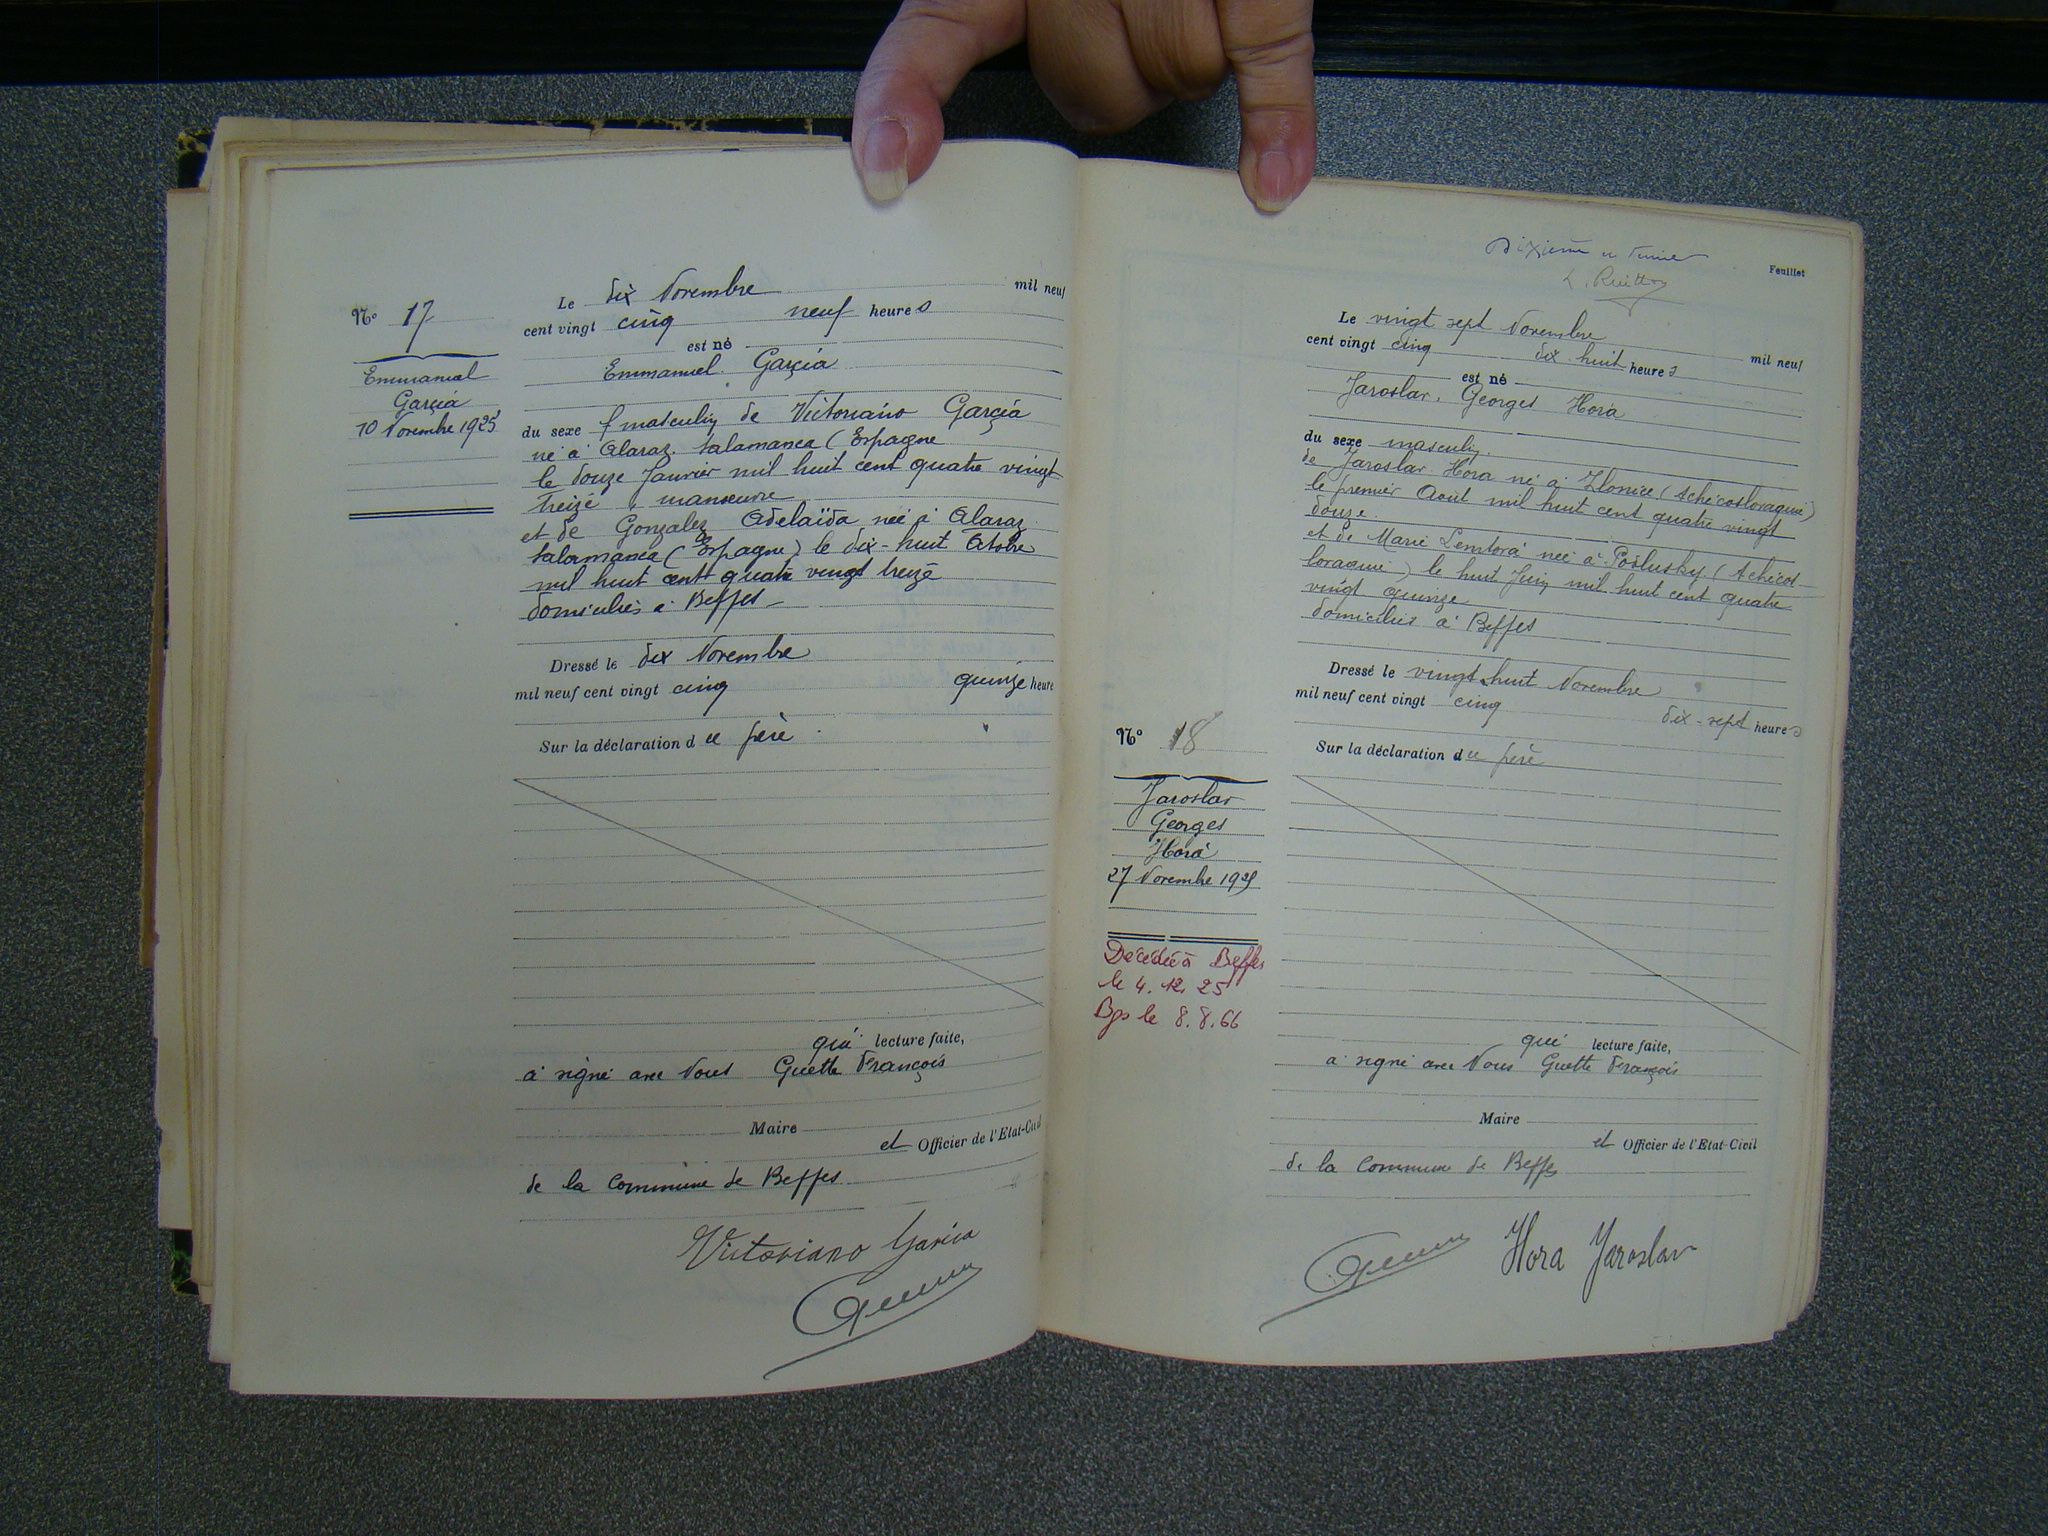 Nº 17
Emmanuel
Garçia
10 Novembre 1925
Le dix Novembre mil neuf
cent vingt cinq neuf heures
est né
Emmanuel Garçia
du sexe masculin de Victoriano Garçia
né à Alaraz Salamanca (Espagne
le douze Janvier mil huit cent quatre vingt
treize, manœuvre
et de Gonzalez Adelaïda née à Alaraz
Salamanca (Espagne) le dix-huit
mil huit cent quatre vingt treize
domiciliés à Beffes
Dressé le dix Novembre
mil neuf cent vingt cinq quinze heure
Sur la déclaration du père
qui lecture faite,
à signé avec Nous Guette François
Maire
et Officier de l'Etat-Civil
de la Commune de Beffes
Victoriano Garcia
Feuillet
Dixième et dernier
Le vingt sept Novembre mil neuf
cent vingt cinq dix huit heures
est né
Jaroslav, Georges Hora
du sexe masculin
de Jaroslav Hora né à Zlonice (Tchécoslovaquie)
le premier Août mil huit cent quatre vingt
douze
et de Marie née à (Tchécos-
lovaquie) le huit Juin mil huit cent quatre
vingt quinze
domiciliés à Beffes
Dressé le vingt huit Novembre
mil neuf cent vingt cinq dix-sept heures
Sur la déclaration du père
Nº 18
Jaroslav
Georges
Hora
27 Novembre 1925
Décédé à Beffes
le 4.12.25
le 8.8.66
qui lecture faite,
a signé avec Nous Guette François
Maire
et Officier de l'Etat-Civil
de la Commune de Beffes
Hora Jaroslav